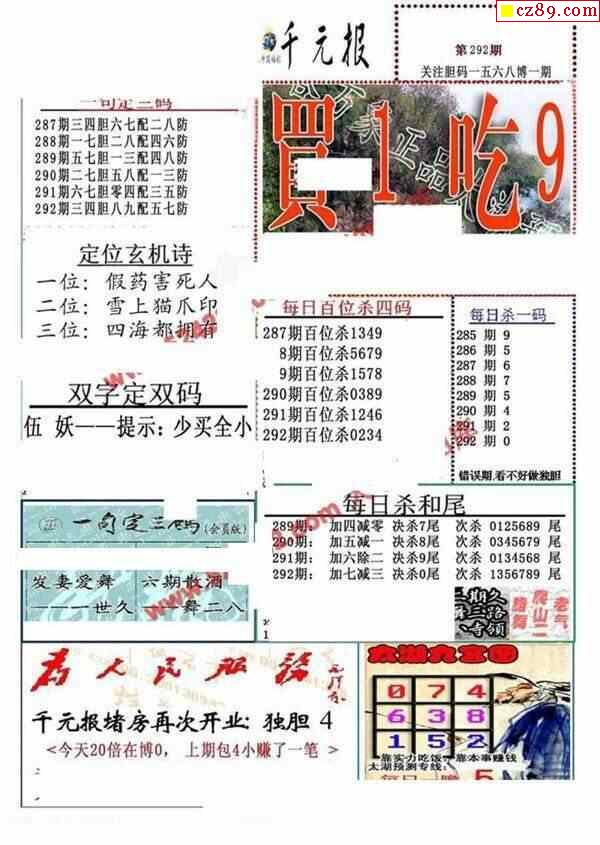 cz89.com
千元报
第292期
关注胆码一五六八博一期
一句定三码
287期三四胆六七配二八防
288期一七胆二八配四六防
289期五七胆一三配四八防
290期二七胆五八配一三防
291期六七胆零四配三五防
292期三四胆八九配五七防
買1吃9
定位玄机诗
一位：假药害死人
二位：雪上猫爪印
三位：四海都拥有
每日百位杀四码
287期百位杀1349
8期百位杀5679
9期百位杀1578
290期百位杀0389
291期百位杀1246
292期百位杀0234
每日杀一码
285 期 9
286 期 5
287 期 6
288 期 7
289 期 2
290 期 4
291 期 2
292 期 0
错误期,看不好做独胆
双字定双码
伍 妖——提示：少买全小
一句定三码(会员版)
发妻爱舞 六期散酒
——一世久 ——舞二八
每日杀和尾
289期: 加四减零 决杀7尾 次杀 0125689 尾
290期: 加五减一 决杀8尾 次杀 0345679 尾
291期: 加六除二 决杀9尾 次杀 0134568 尾
292期: 加七减三 决杀0尾 次杀 1356789 尾
为人民服务
千元报堵房再次开业: 独胆 4
<今天20倍在博0， 上期包4小赚了一笔>
太湖九宫图
0 7 4
6 3 8
1 5 2
靠实力吃饭，靠本事赚钱
太湖预测专线:
5